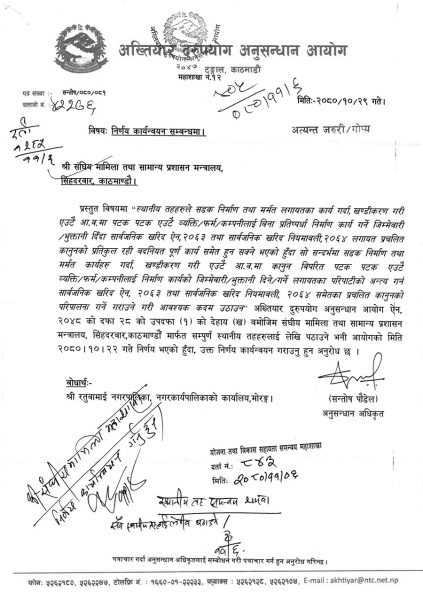 अख्तियार दुरुपयोग अनुसन्धान आयोग
टङ्गाल, काठमाडौं
महाशाखा नं.१२
पत्र संख्या : सन्तोष/०८०/०८१
चलानी नं. : ४२२७६
मितिः-२०८०/१०/२९ गते।
०८०/११/६
दर्ता
११/६
विषयः निर्णय कार्यन्वयन सम्बन्धमा।
अत्यन्त जरुरी/गोप्य
श्री संघिय मामिला तथा सामान्य प्रशासन मन्त्रालय,
सिंहदरवार, काठमाण्डौं।
प्रस्तुत विषयमा "स्थानीय तहहरुले सडक निर्माण तथा मर्मत लगायतका कार्य गर्दा,खण्डीकरण गरी
एउटै आ.व.मा पटक पटक एउटै व्यक्ति/फर्म/कम्पनीलाई बिना प्रतिष्पर्धा निर्माण कार्य गर्ने जिम्मेवारी
/भुक्तानी दिँदा सार्वजनिक खरिद ऐन,२०६३ तथा सार्वजनिक खरिद नियमावली,२०६४ लगायत प्रचलित
कानुनको प्रतिकुल रही बदनियत पूर्ण कार्य समेत हुन सक्ने भएको हुँदा सो सन्दर्भमा सडक निर्माण तथा
मर्मत कार्यहरु गर्दा, खण्डीकरण गरी एउटै आ.व.मा कानुन विपरित पटक पटक एउटै
व्यक्ति/फर्म/कम्पनीलाई निर्माण कार्यको जिम्मेवारी/भुक्तानी दिने/गर्ने लगायतका परिपाटीको अन्त्य गर्न
सार्वजनिक खरिद ऐन, २०६३ तथा सार्वजनिक खरिद नियमावली, २०६४ समेतका प्रचलित कानुनको
परिपालना गर्ने गराउने गरी आवश्यक कदम उठाउन" अख्तियार दुरुपयोग अनुसन्धान आयोग ऐन,
२०४८ को दफा २८ को उपदफा (१) को देहाय (ख) बमोजिम संघीय मामिला तथा सामान्य प्रशासन
मन्त्रालय, सिंहदरवार,काठमाण्डौं मार्फत सम्पुर्ण स्थानीय तहहरुलाई लेखि पठाउने भनी आयोगको मिति
२०८०।१०।२२ गते निर्णय भएको हुँदा, उक्त निर्णय कार्यन्वयन गराउनु हुन अनुरोध छ ।
(सन्तोष पौडेल)
अनुसन्धान अधिकृत
बोधार्थः
श्री रतुवामाई नगरपालिका, नगरकार्यपालिकाको कार्यालय,मोरङ्ग।
योजना तथा विकास सहायता समन्वय महाशाखा
दर्ता नं.: ८४३
मिति: २०८०/११/०६
स्थानीय तह समन्वय शाखा
११/६
पत्राचार गर्दा अनुसन्धान अधिकृतलाई सम्बोधन गरी पत्राचार गर्न हुन अनुरोध गरिन्छ।
फोन: ५२६२१८०, ५२६२२४७, टोलफ्रि नं. : १६६०-०१-२२२३३, फ्याक्स : ५२६२१२८, ५२६२१०७, E-mail : akhtiyar@ntc.net.np